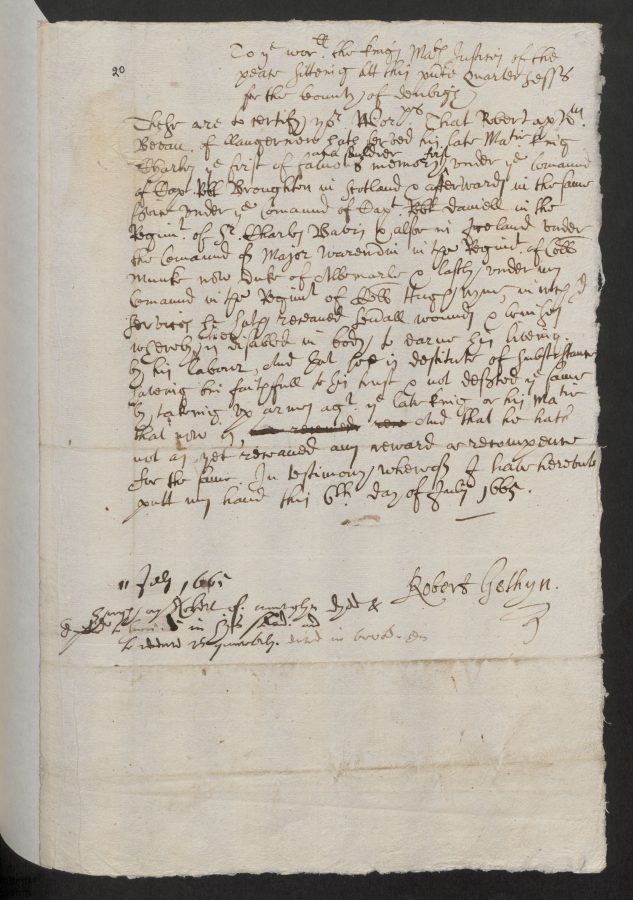 20
To ye worll the kings Matis Justices of the
peace sitteing att this quarter sess's
for the County of denbigh
These are to certify yor Worps That Robert ap Wm
Bevan of llangernew hath served his late Matie king
Charles ye first of famos memory
as a souldier
under ye Comaund
of Capt Robt Broughton in Scotland & afterwards in the same
under ye Comaund of Capt Robt Daniell in the
Regimt of Sr Charles & alsoe in Ireland under
the Comaund of Major Warendin in the Regimt of Coll
Munke now Duke of Albemarle & lastly under my
Comaund in the Regimt of Coll Hugh Wynne, in wch sd
services he hath receaved sevall wounds &
whereby hee is disabled in body to earne his liveing
by his labour, And that hee is destitute of Subsistance
haveing bin faithfull to his trust & not deserted ye same
by takeing up armes agt ye late king or his Matie
that now is, And that he hath
not as yet receaved any reward or recompence
for the same. In testimony whereof I have hereunto
putt my hand this 6th day of July 1665.
Robert Gethyn.
11 July 1665
Robert of &
in
in